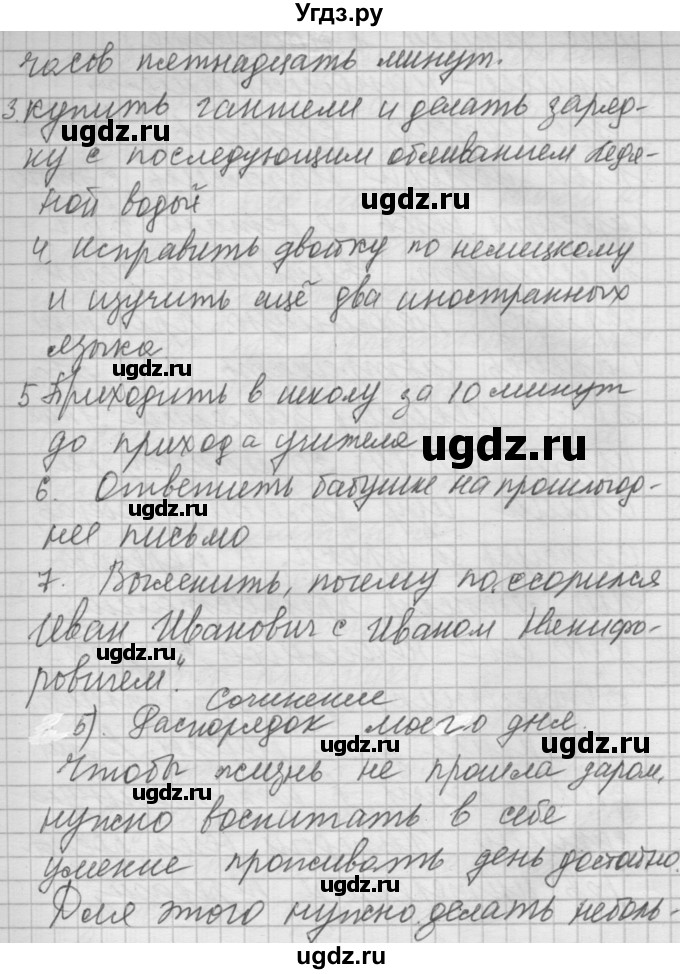 Угдз.ру
часов пятнадцать минут.
3. купить гантели и делать заряд-
ку с последующим обливанием ледя-
ной водый
4. Исправить двойку по немецкому
и изучить ещё два иностранных
языка
5 Приходить в школу за 10 минут
до прихода учителя
6. Ответить бабушке на прошлогод-
нее письмо
7. Выяснить, почему поссорился
Иван Иванович с Иваном Никифо-
ровичем".
Сочинение
5). Распорядок моего дня.
Чтобы жизнь не прошла даром,
нужно воспитать в себе
умение проживать день достойно.
Для этого нужно делать неболь-
ugdz.ru
ugdz.ru
ugdz.ru
ugdz.ru
ugdz.ru
ugdz.ru
ugdz.ru
ugdz.ru
ugdz.ru
ugdz.ru
ugdz.ru
ugdz.ru